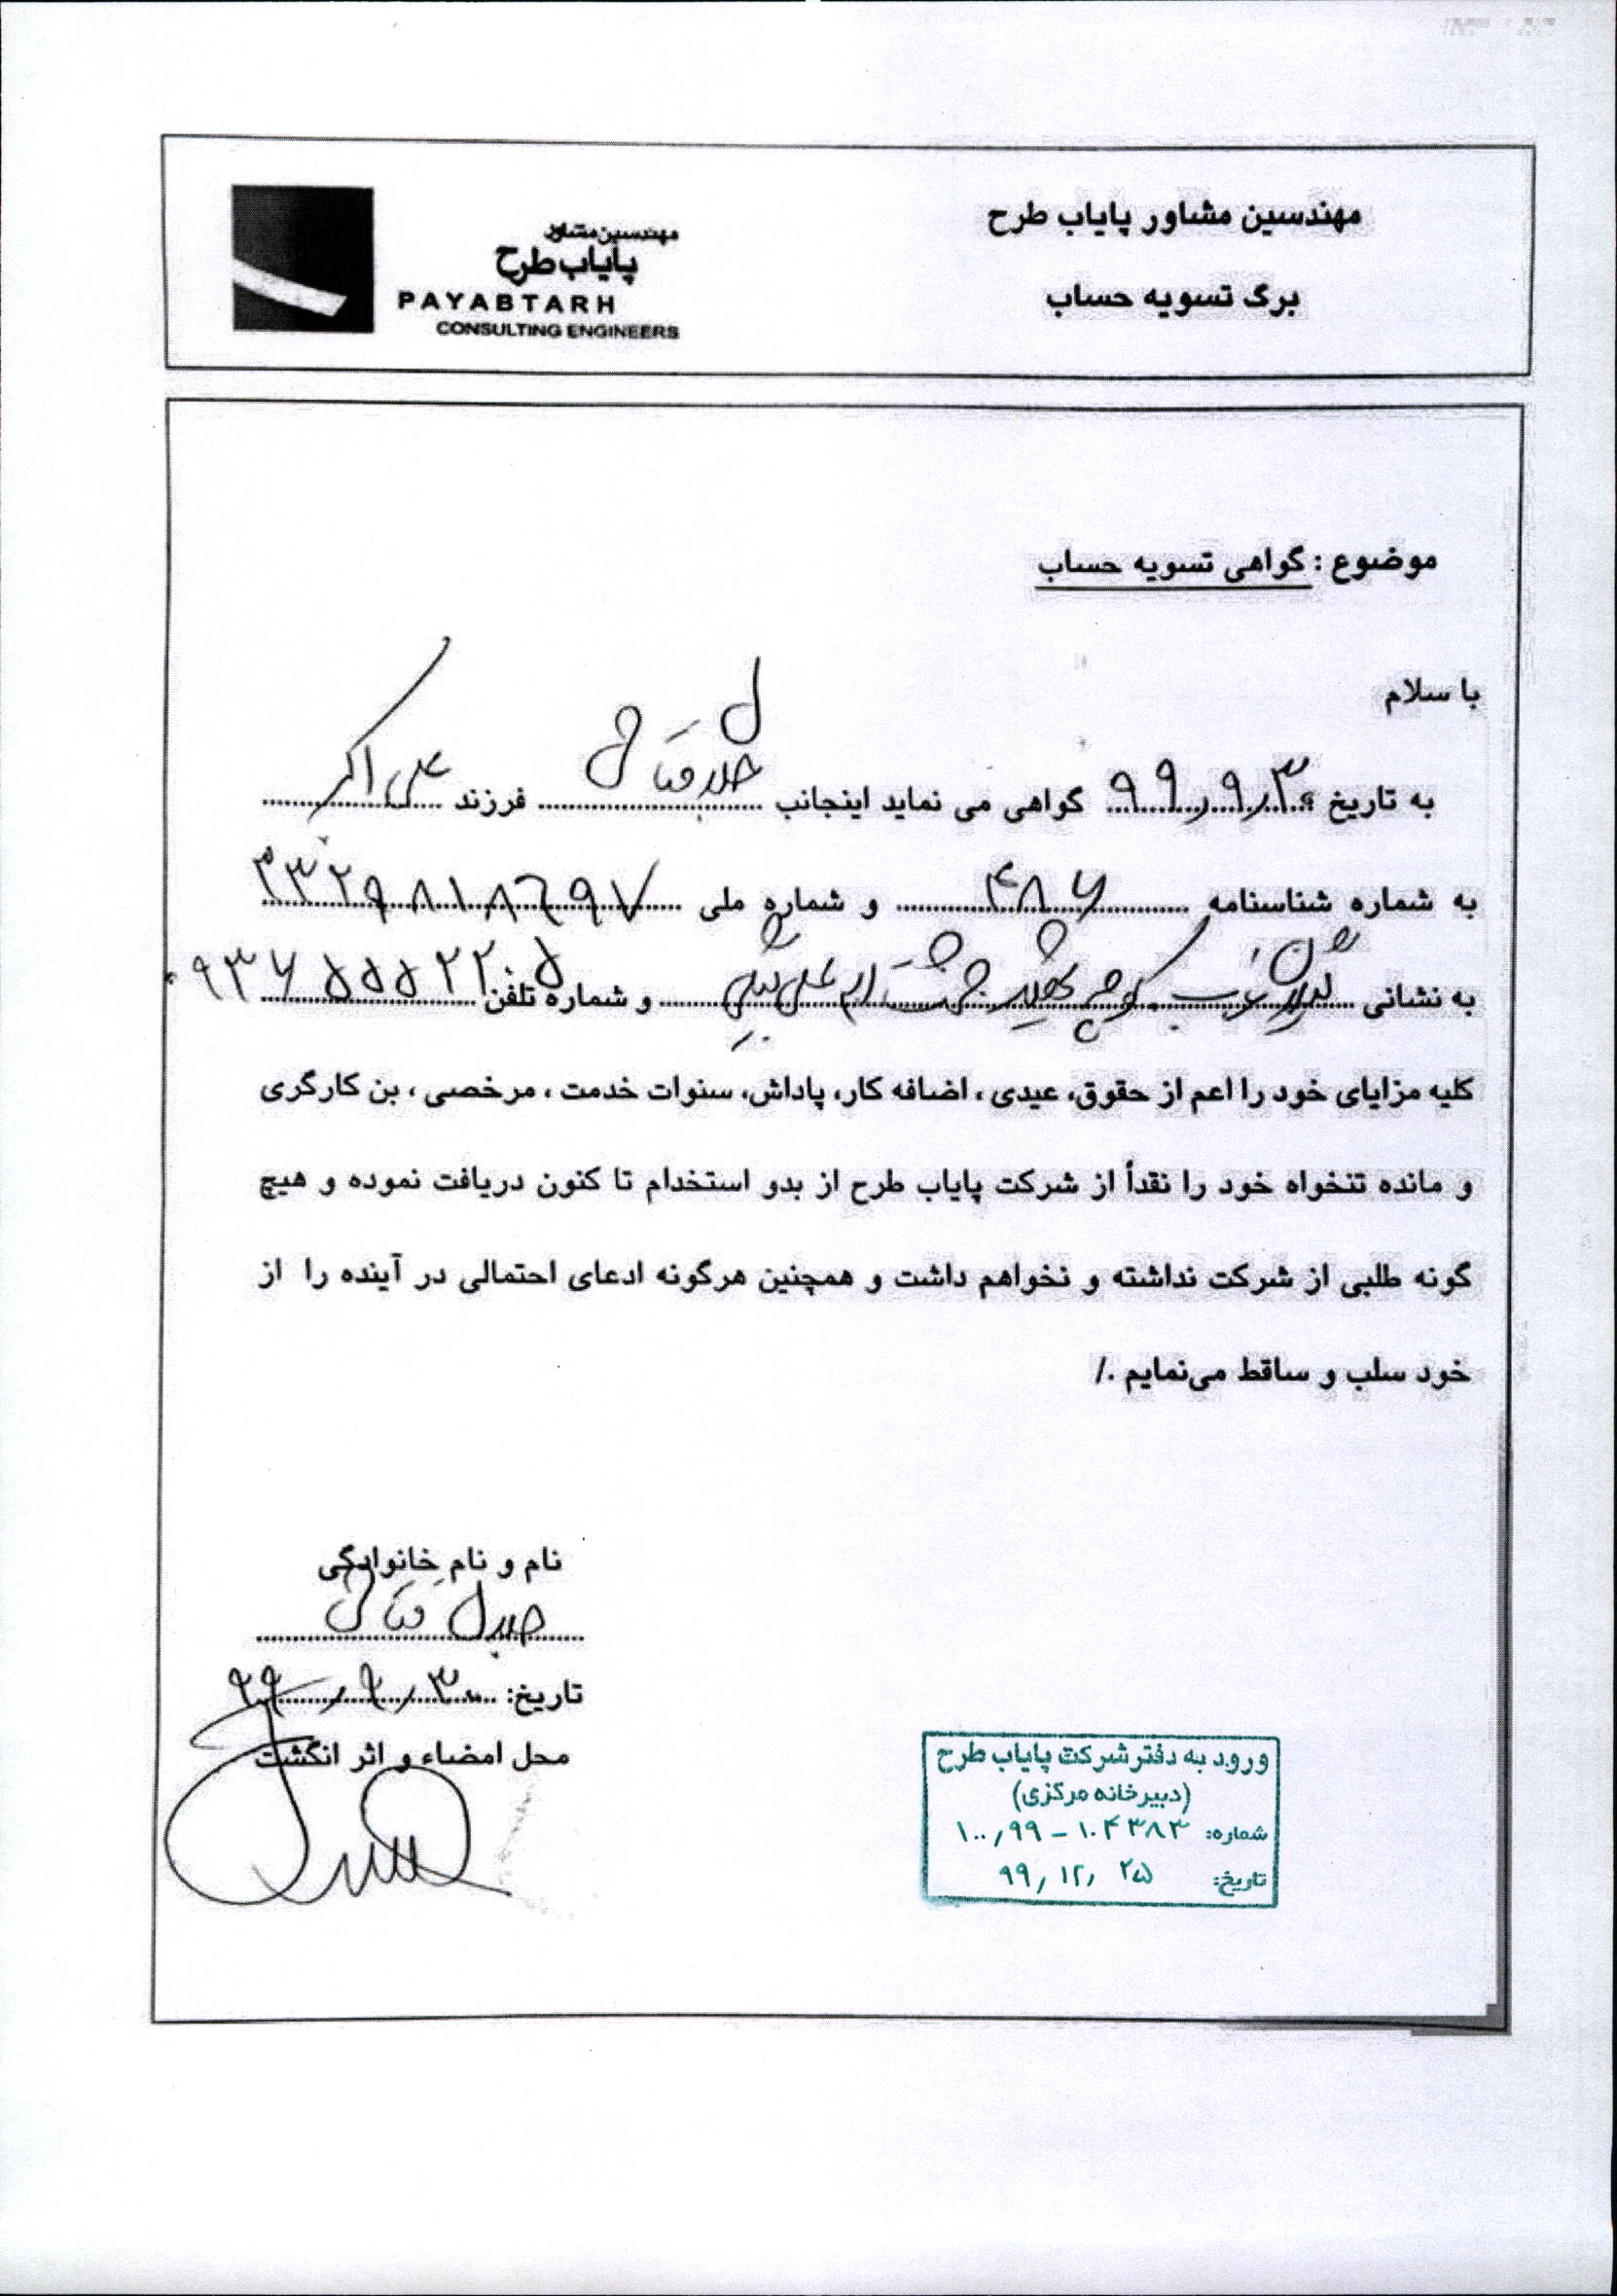 مهندسین مشاور پایاب طرح
برگ تسویه حساب
مهندسین مشاور
پایاب طرح
PAYABTARH
CONSULTING ENGINEERS
موضوع : گواهی تسویه حساب
با سلام
به تاریخ ۹۹/۹/۳۰ گواهی می نماید اینجانب فرزند علی اکبر
به شماره شناسنامه ۴۸۶ و شماره ملی
به نشانی و شماره تلفن ۰۹۳۶۵۵۵۲۲۰۵
کلیه مزایای خود را اعم از حقوق، عیدی ، اضافه کار، پاداش، سنوات خدمت ، مرخصی ، بن کارگری
و مانده تنخواه خود را نقداً از شرکت پایاب طرح از بدو استخدام تا کنون دریافت نموده و هیچ
گونه طلبی از شرکت نداشته و نخواهم داشت و همچنین هرگونه ادعای احتمالی در آینده را از
خود سلب و ساقط می‌نمایم ./
نام و نام خانوادگی
تاریخ: ۹۹/۹/۳۰
محل امضاء و اثر انگشت
ورود به دفتر شرکت پایاب طرح
(دبیرخانه مرکزی)
شماره: ۱۰۰/۹۹ – ۱۰۴۳۸۳
تاریخ: ۹۹/۱۲/۲۵